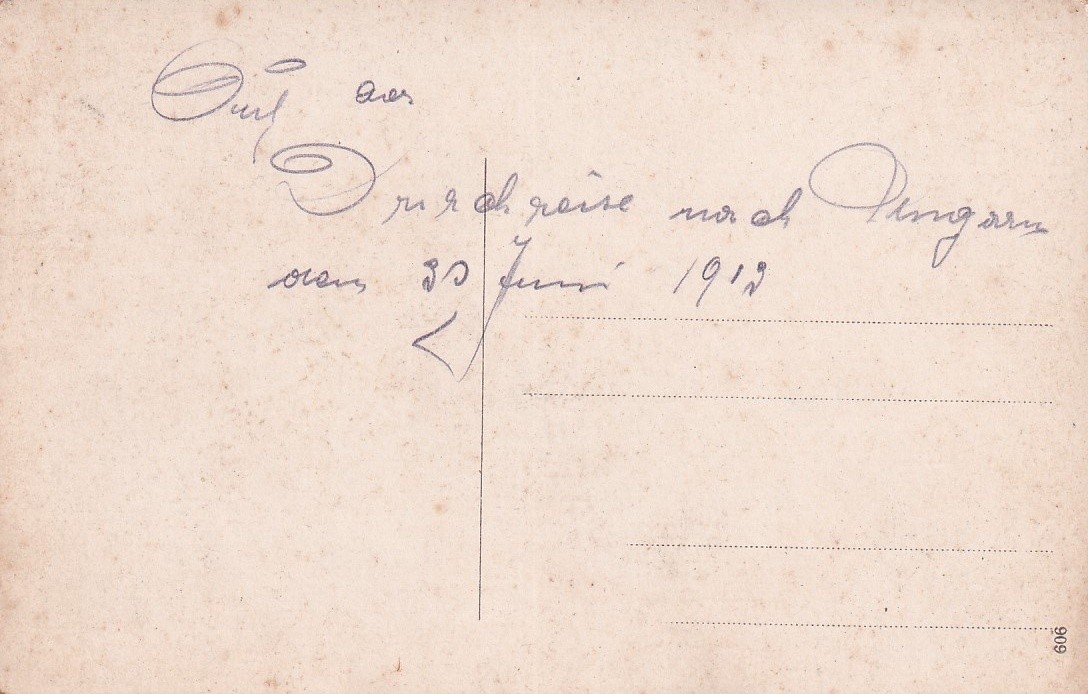 Auf der
Durchreise nach Ungarn
den 20 Juni 1912
606